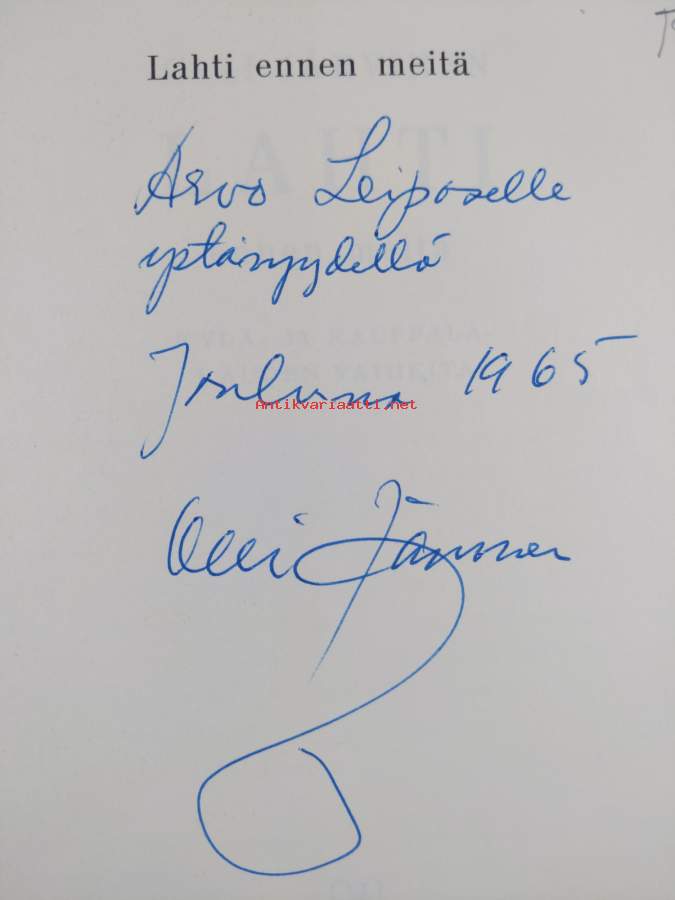 Lahti ennen meitä
Arvo Leiposelle
ystävyydellä
Jouluna 1965
Antikvariaatti.net
Olli Järvinen